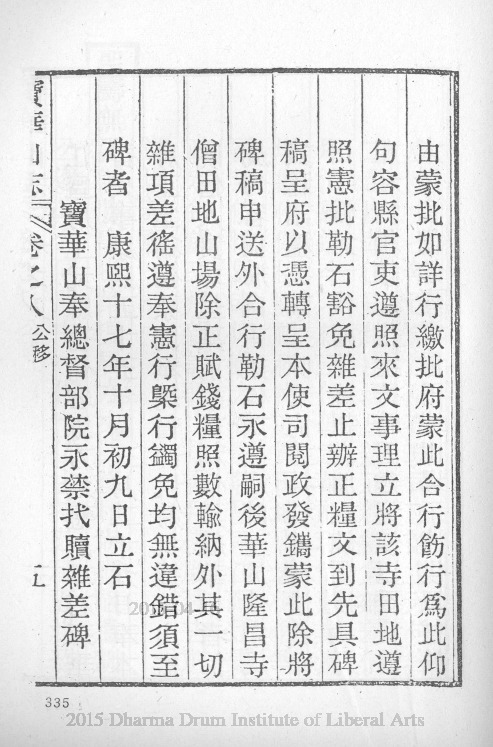 由蒙批如詳行繳批府蒙此合行飭行爲此仰
句容縣官吏遵照來文事理立將該寺田地遵
照憲批勒石豁免雜差止辦正糧文到先具碑
稿呈府以憑轉呈本使司閱政發鐫蒙此除將
碑稿申送外合行勒石永遵嗣後華山隆昌寺
僧田地山場除正賦錢糧照數輸納外其一切
雜項差徭遵奉憲行槩行蠲免均無違錯須至
碑者 康熙十七年十月初九日立石
寶華山奉總督部院永禁找贖雜差碑
寶華山志 卷之八 公移 五
335
2015 Dharma Drum Institute of Liberal Arts